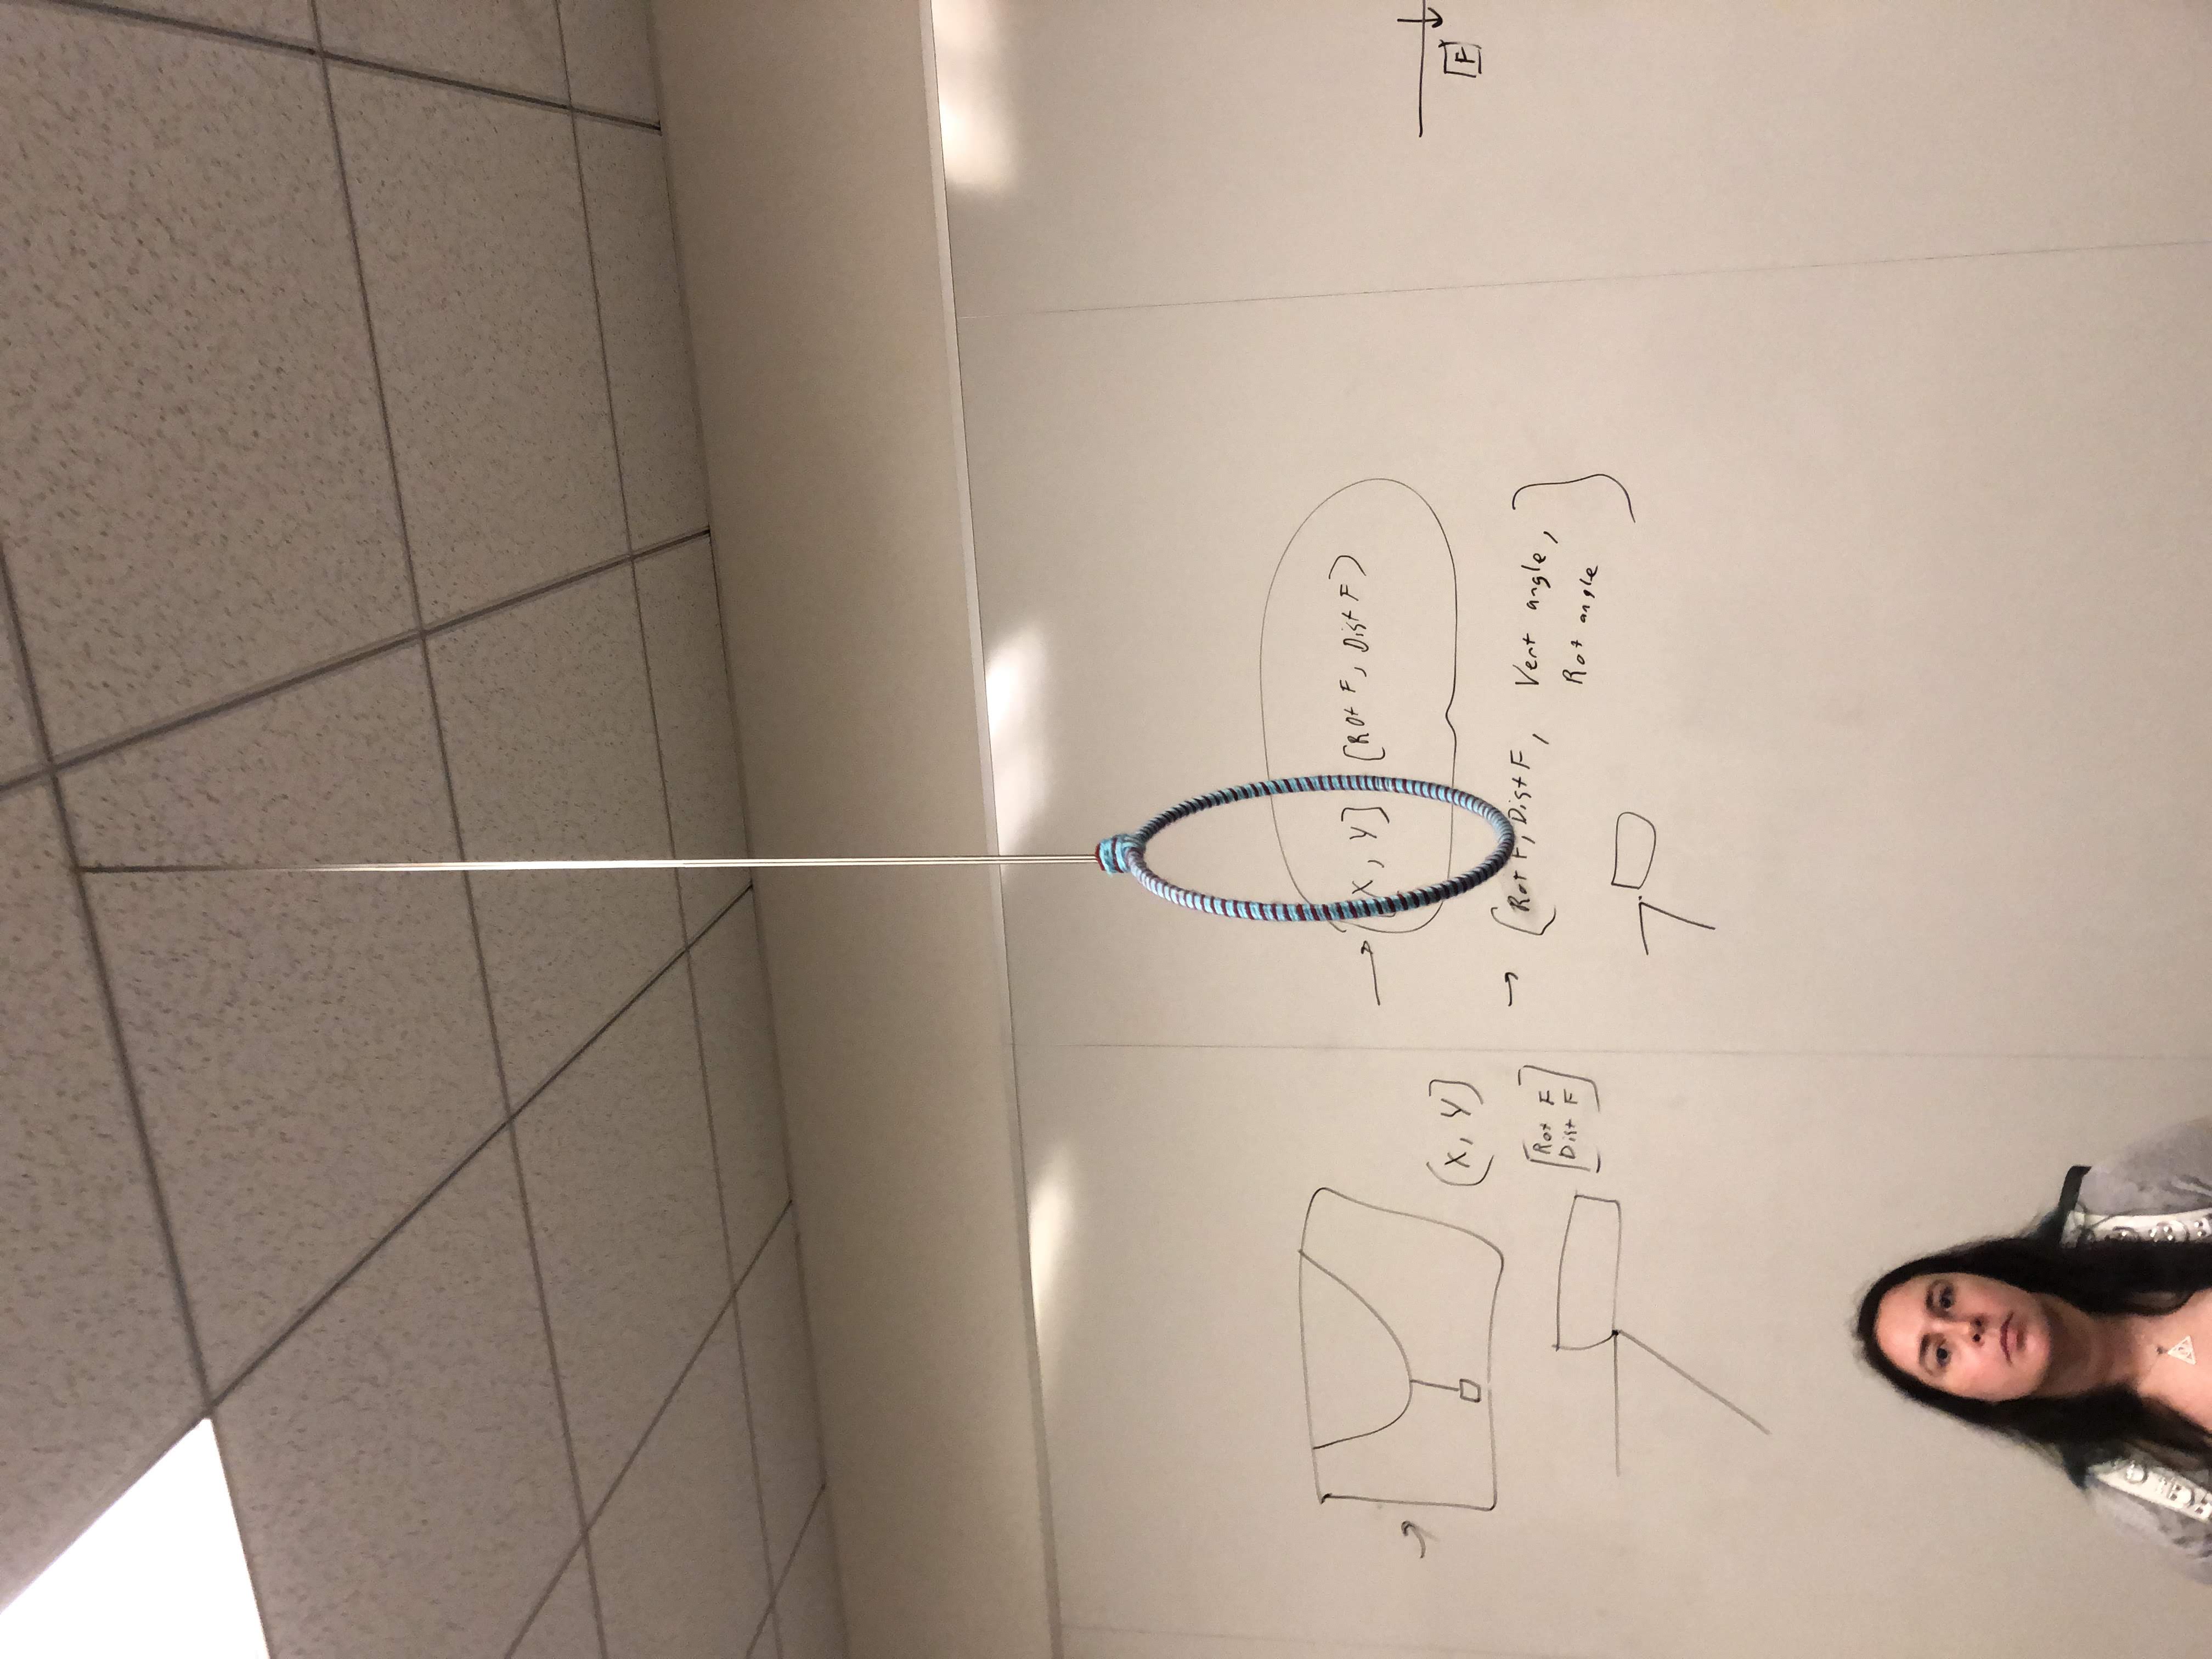 (X, Y]
[Rot F
Dist F]
X, Y] [Rot F, Dist F)
[Rot F, Dist F, Vert angle,
Rot angle]
F